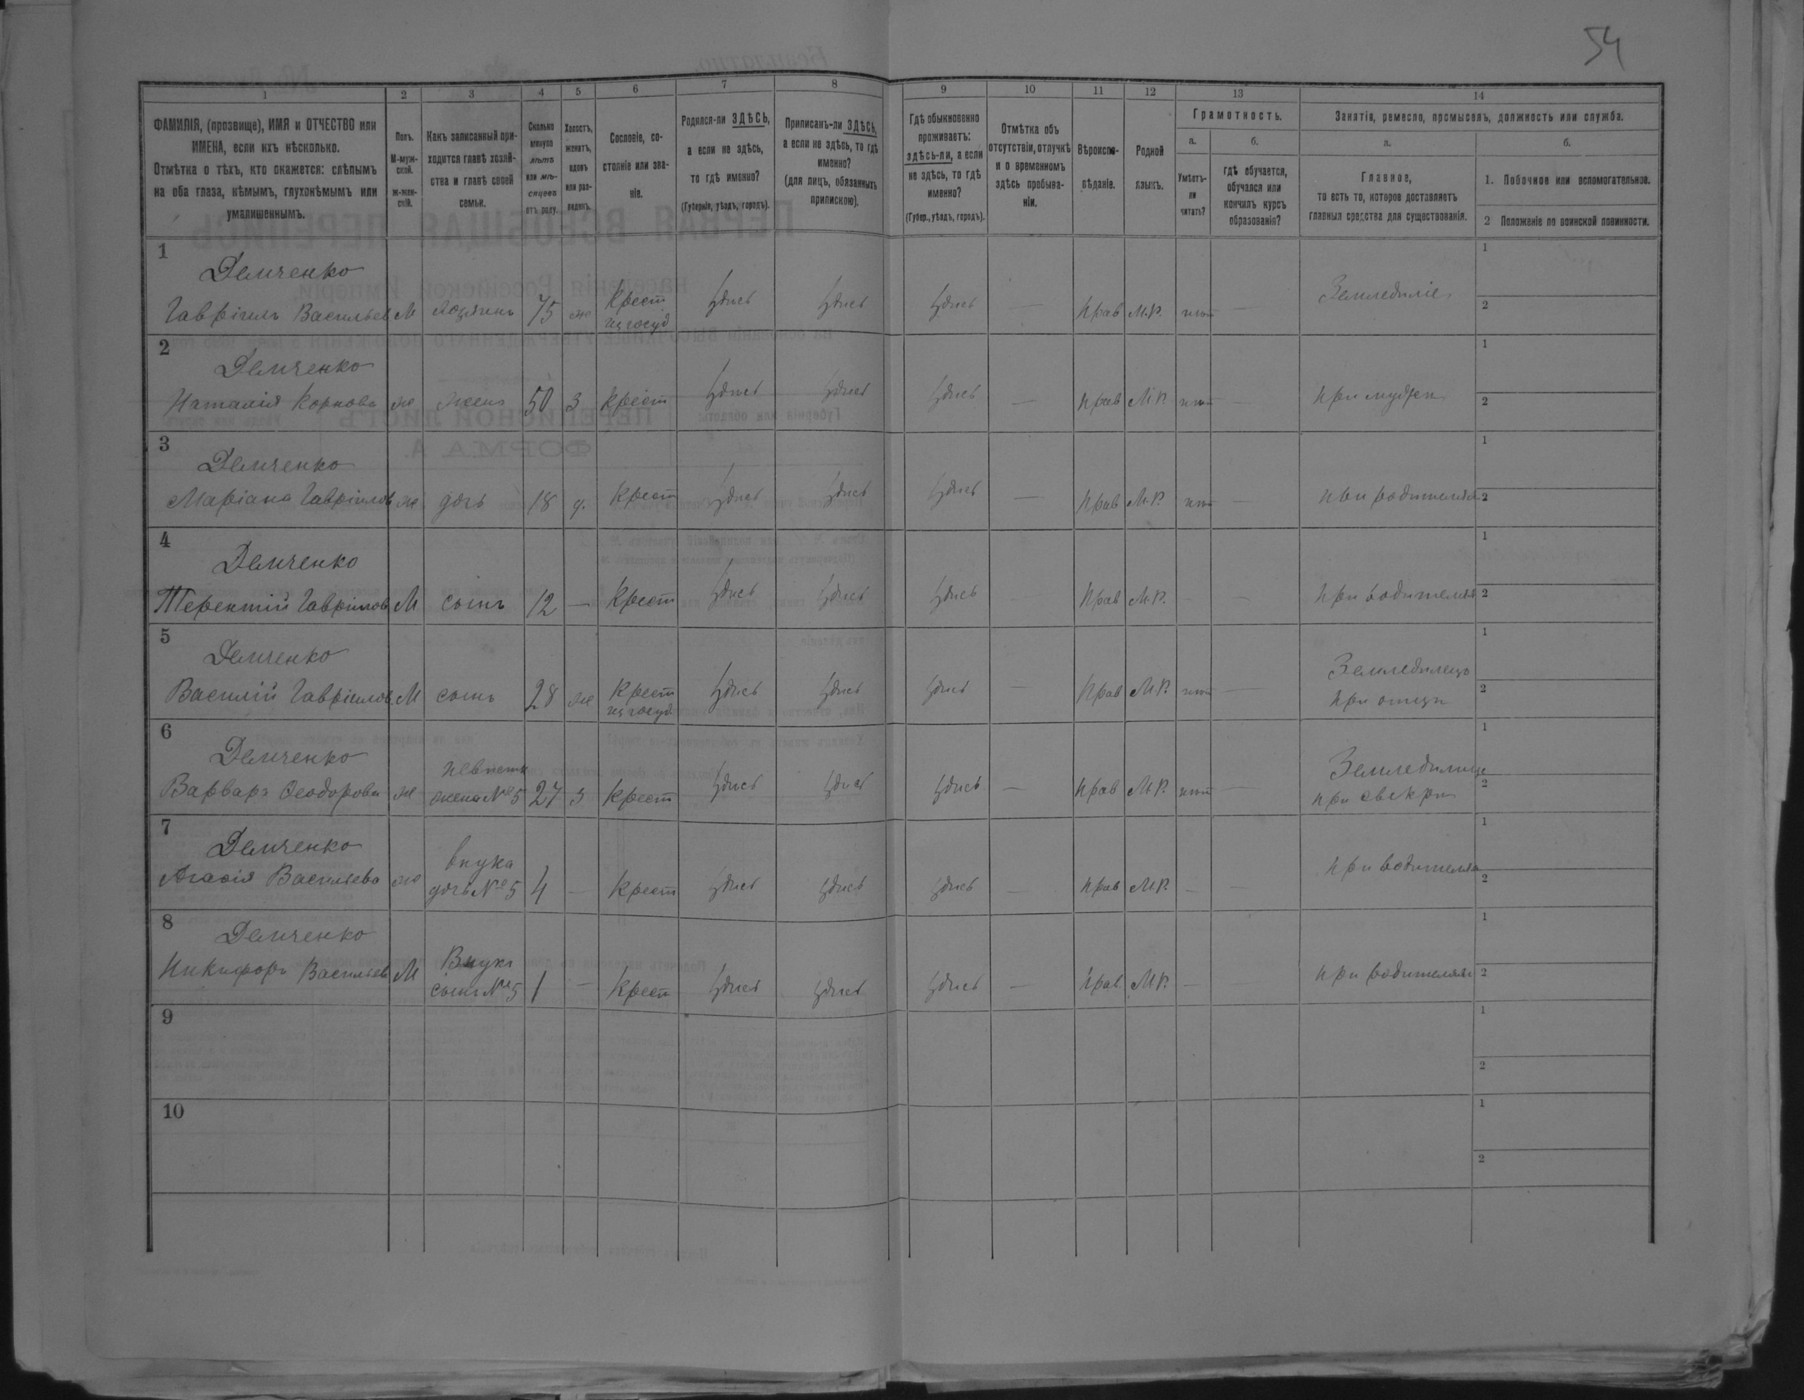 54
1 2 3 4 5 6 7 8 9 10 11 12 13 14
ФАМИЛІЯ, (прозвище), ИМЯ и ОТЧЕСТВО или ИМЕНА, если ихъ нѣсколько.
Отмѣтка о тѣхъ, кто окажется: слѣпымъ на оба глаза, нѣмымъ, глухонѣмымъ или умалишеннымъ.
Полъ. М-мужской. ж-женскій.
Какъ записанный приходится главѣ хозяйства и главѣ своей семьи.
Сколько минуло лѣтъ или мѣсяцевъ отъ роду.
Холостъ, женатъ, вдовъ или разведенъ.
Сословіе, состояніе или званіе.
Родился-ли ЗДѢСЬ, а если не здѣсь, то гдѣ именно?
(Губернія, уѣздъ, городъ).
Приписанъ-ли ЗДѢСЬ, а если не здѣсь, то гдѣ именно?
(для лицъ, обязанныхъ припискою).
Гдѣ обыкновенно проживаетъ: здѣсь-ли, а если не здѣсь, то гдѣ именно?
(Губер., уѣздъ, городъ).
Отмѣтка объ отсутствіи, отлучкѣ и о временномъ здѣсь пребываніи.
Вѣроисповѣданіе.
Родной языкъ.
Грамотность.
а. Умѣетъ-ли читать?
б. гдѣ обучается, обучался или кончилъ курсъ образованія?
Занятія, ремесло, промыселъ, должность или служба.
а. Главное, то есть то, которое доставляетъ главныя средства для существованія.
б.
1. Побочное или вспомогательное.
2 Положеніе по воинской повинности.
1 Демченко 1
Гавріилъ Васильев М Хозяинъ 75 же Крест из госуд здѣсь здѣсь здѣсь — прав М.Р. нѣт — Земледѣліе 2
2 Демченко 1
Наталія Корнова же жена 50 З Крест здѣсь здѣсь здѣсь — прав М.Р. нѣт — при мужѣ 2
3 Демченко 1
Маріана Гаврілов же дочь 18 д. Крест здѣсь здѣсь здѣсь — прав М.Р. нѣт — при родителях 2
4 Демченко 1
Терентій Гаврілов М сынъ 12 — Крест здѣсь здѣсь здѣсь — прав М.Р. — — при родителях 2
5 Демченко 1
Василій Гаврілов М сынъ 28 же Крест из госуд здѣсь здѣсь здѣсь — прав М.Р. нѣт — Земледѣлецъ при отцѣ 2
6 Демченко 1
Варвара Ѳеодорова же невѣстка жена №5 27 З Крест здѣсь здѣсь здѣсь — прав М.Р. нѣт — при свекрѣ 2
7 Демченко 1
Агафія Васильева же внука дочь №5 4 — Крест здѣсь здѣсь здѣсь — прав М.Р. — — при родителях 2
8 Демченко 1
Никифоръ Васильев М Внукъ сынъ №5 1 — Крест здѣсь здѣсь здѣсь — прав М.Р. — — при родителях 2
9 1
2
10 1
2